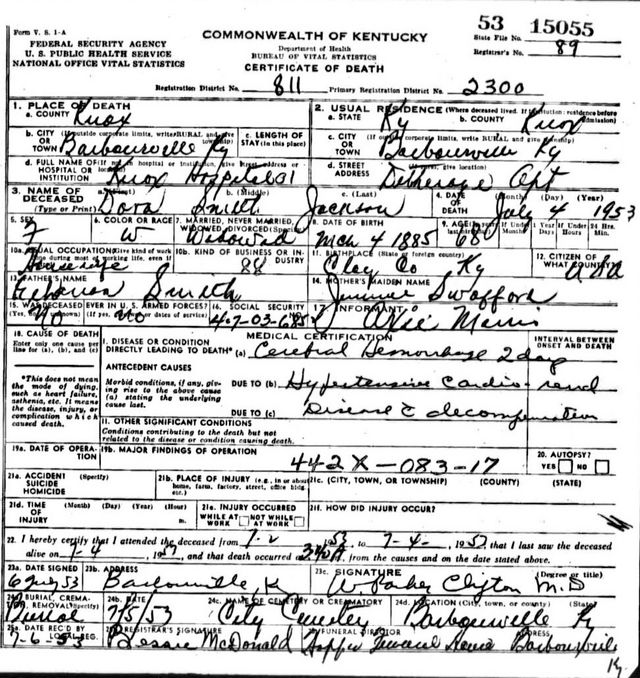 Form V. S. 1-A
FEDERAL SECURITY AGENCY
U. S. PUBLIC HEALTH SERVICE
NATIONAL OFFICE VITAL STATISTICS
COMMONWEALTH OF KENTUCKY
Department of Health
BUREAU OF VITAL STATISTICS
CERTIFICATE OF DEATH
53 15055
State File No.
Registrar's No. 89
Registration District No. 811 Primary Registration District No. 2300
1. PLACE OF DEATH
a. COUNTY Knox
2. USUAL RESIDENCE (Where deceased lived. If institution: residence before admission)
a. STATE Ky b. COUNTY Knox
b. CITY (If outside corporate limits, write RURAL and give OR TOWN Barbourville Ky
c. LENGTH OF STAY (in this place)
c. CITY (If corporate limits, write RURAL and give township) OR TOWN Barbourville Ky
d. FULL NAME OF (If not in hospital or institution, give street address or HOSPITAL OR INSTITUTION Knox Hospital
d. STREET ADDRESS give location) Apt
3. NAME OF DECEASED (Type or Print)
a. (First) Dora b. (Middle) Smith c. (Last) Jackson
4. DATE OF DEATH (Month) (Day) (Year) July 4 1953
5. SEX F
6. COLOR OR RACE W
7. MARRIED, NEVER MARRIED, WIDOWED, DIVORCED (Specify) Widowed
8. DATE OF BIRTH Mch 4 1885
9. AGE 68 If Under If Under 24 Hrs. Months Days Hours Min.
10a. USUAL OCCUPATION (Give kind of work done during most of working life, even if Housewife
10b. KIND OF BUSINESS OR INDUSTRY 88
11. BIRTHPLACE (State or foreign country) Clay Co Ky
12. CITIZEN OF WHAT COUNTRY? USA
13. FATHER'S NAME Smith
14. MOTHER'S MAIDEN NAME Swafford
15. WAS DECEASED EVER IN U. S. ARMED FORCES? (Yes, no or unknown) (If yes, give war or dates of service) No no
16. SOCIAL SECURITY
17. INFORMANT
18. CAUSE OF DEATH
Enter only one cause per line for (a), (b), and (c)
MEDICAL CERTIFICATION
INTERVAL BETWEEN ONSET AND DEATH
I. DISEASE OR CONDITION DIRECTLY LEADING TO DEATH* (a) Cerebral Hemorrhage 2 day
*This does not mean the mode of dying, such as heart failure, asthenia, etc. It means the disease, injury, or complication which caused death.
ANTECEDENT CAUSES
Morbid conditions, if any, giving rise to the above cause (a) stating the underlying cause last.
DUE TO (b) Hypertensive Cardio-renal
DUE TO (c) Disease c decompensation
II. OTHER SIGNIFICANT CONDITIONS
Conditions contributing to the death but not related to the disease or condition causing death.
19a. DATE OF OPERATION
19b. MAJOR FINDINGS OF OPERATION
442X-083-17
20. AUTOPSY?
YES NO
21a. ACCIDENT SUICIDE HOMICIDE (Specify)
21b. PLACE OF INJURY (e.g., in or about home, farm, factory, street, office bldg., etc.)
21c. (CITY, TOWN, OR TOWNSHIP) (COUNTY) (STATE)
21d. TIME OF INJURY (Month) (Day) (Year) (Hour) m.
21e. INJURY OCCURRED WHILE AT WORK NOT WHILE AT WORK
21f. HOW DID INJURY OCCUR?
22. I hereby certify that I attended the deceased from 7-2, 1953, to 7-4-, 1953, that I last saw the deceased
alive on 7-4, 1953, and that death occurred from the causes and on the date stated above.
23a. DATE SIGNED 6 July 53
23b. ADDRESS Barbourville, K
23c. SIGNATURE (Degree or title) W. Parker Clifton M.D
24a. BURIAL, CREMATION, REMOVAL (Specify) Burial
24b. DATE 7/5/53
24c. NAME OF CEMETERY OR CREMATORY City Cemetery
24d. LOCATION (City, town, or county) (State) Barbourville Ky
25a. DATE REC'D BY LOCAL REG. 7-6-53
REGISTRAR'S SIGNATURE Bessie McDonald
FUNERAL DIRECTOR ADDRESS Hopper Funeral Home Barbourville
Ky